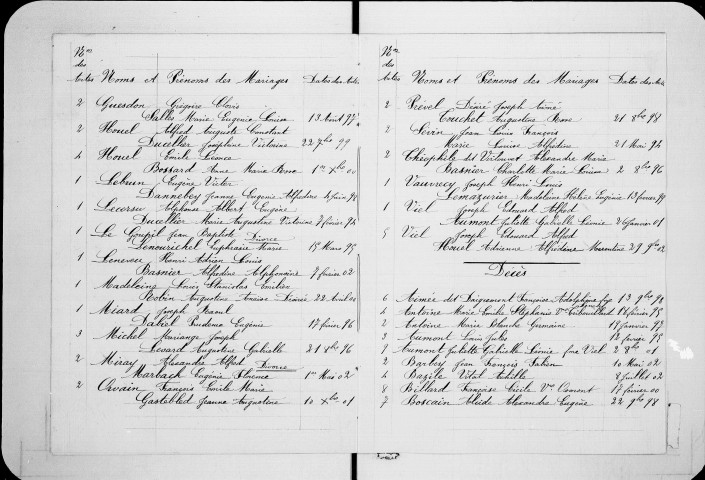 Nos
des
Actes Noms et Prénoms des Mariages Dates des Actes
2 Guesdon Grégoire Clovis
Salles Marie Eugénie Louise 13 Août 97
2 Houel Alfred Auguste Constant
Ducellier Joséphine Victoire 22 7bre 99
4 Houel Emile Léonce
Bossard Anne Marie Rose 1er Xbre 00
1 Lebrun Eugène Victor
Dannebey Jeanne Eugénie Alfredine 4 Juin 98
1 Lecorsu Alphonse Albert Eugène
Ducellier Marie Augustine Victoire 7 février 94
1 Le Goupil Jean Baptiste Divorce
Lenourichel Euphrasie Marie 15 Mars 95
1 Leneveu Henri Adrien Louis
Basnier Alfredine Alphonsine 7 février 02
1 Madeleine Louis Stanislas Emilien
Bobin Augustine Louise Désirée 23 Avril 01
1 Miard Joseph Raoul
Dabiel Prudence Eugénie 17 février 96
3 Michel Mariange Joseph
Levard Augustine Gabrielle 21 8bre 96
2 Miray Alexandre Alfred Divorce
Marbach Eugénie Florence 1er Mars 02
2 Orvain François Emile Marie
Gastebled Jeanne Augustine 10 Xbre 01
Nos
des
Actes Noms et Prénoms des Mariages Dates des Actes
2 Prevel Désiré Joseph Aimé
Couchet Augustine Rose 21 8bre 98
2 Sévin Jean Louis François
Marie Louise Alfredine 21 Mai 94
2 Théophile dit Virtouvet Alexandre Marie
Basnier Charlotte Marie Louise 2 8bre 96
1 Vauvrecy Joseph Henri Louis
Lemazurier Madeleine Hélène Eugénie 13 février 99
1 Viel Joseph Edouard Alfred
Aumont Juliette Gabrielle Léonie 26 janvier 01
5 Viel Joseph Edouard Alfred
Houel Adrienne Alfredine Florentine 29 9bre 02
Décès
6 Aimée dit Daigremont Françoise Adolphine 13 9bre 98
4 Antoine Marie Emilie Stéphanie 18 février 95
2 Antoine Marie Blanche Germaine 19 janvier 93
3 Aumont Louis Jules 12 février 95
7 Aumont Juliette Gabrielle Léonie fme Viel 2 8bre 01
2 Barbey Jean François Fabien 10 Mars 02
4 Bazile Vital Achille 8 Juillet 02
8 Billard Françoise Cécile Vve Osmont 17 février 00
7 Boscain Alcide Alexandre Eugène 22 9bre 98